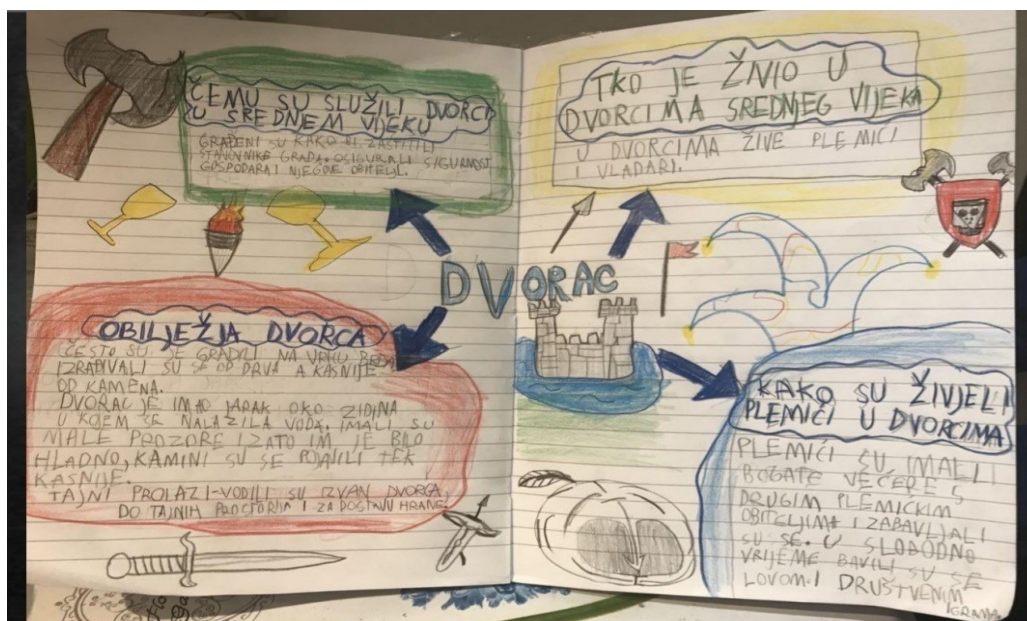 ČEMU SU SLUŽILI DVORCI
U SREDNJEM VIJEKU
GRAĐENI SU KAKO BI ZAŠTITILI
STANOVNIKE GRADA. OSIGURALI SIGURNOST
GOSPODARA I NJEGOVE OBITELJI.
TKO JE ŽIVIO U
DVORCIMA SREDNJEG VIJEKA
U DVORCIMA ŽIVE PLEMIĆI
I VLADARI.
DVORAC
OBILJEŽJA DVORCA
ČESTO SU SE GRADILI NA VRHU BRDA
IZRAĐIVALI SU SE OD DRVA A KASNIJE
OD KAMENA.
DVORAC JE IMAO JARAK OKO ZIDINA
U KOJEM SE NALAZILA VODA. IMALI SU
MALE PROZORE I ZATO IM JE BILO
HLADNO, KAMINI SU SE POJAVILI TEK
KASNIJE.
TAJNI PROLAZI-VODILI SU IZVAN DVORCA,
DO TAJNIH PROSTORIJA I ZA DOSTAVU HRANE.
KAKO SU ŽIVJELI
PLEMIĆI U DVORCIMA
PLEMIĆI SU IMALI
BOGATE VEČERE S
DRUGIM PLEMIĆKIM
OBITELJIMA I ZABAVLJALI
SU SE. U SLOBODNO
VRIJEME BAVILI SU SE
LOVOM I DRUŠTVENIM
IGRAMA.